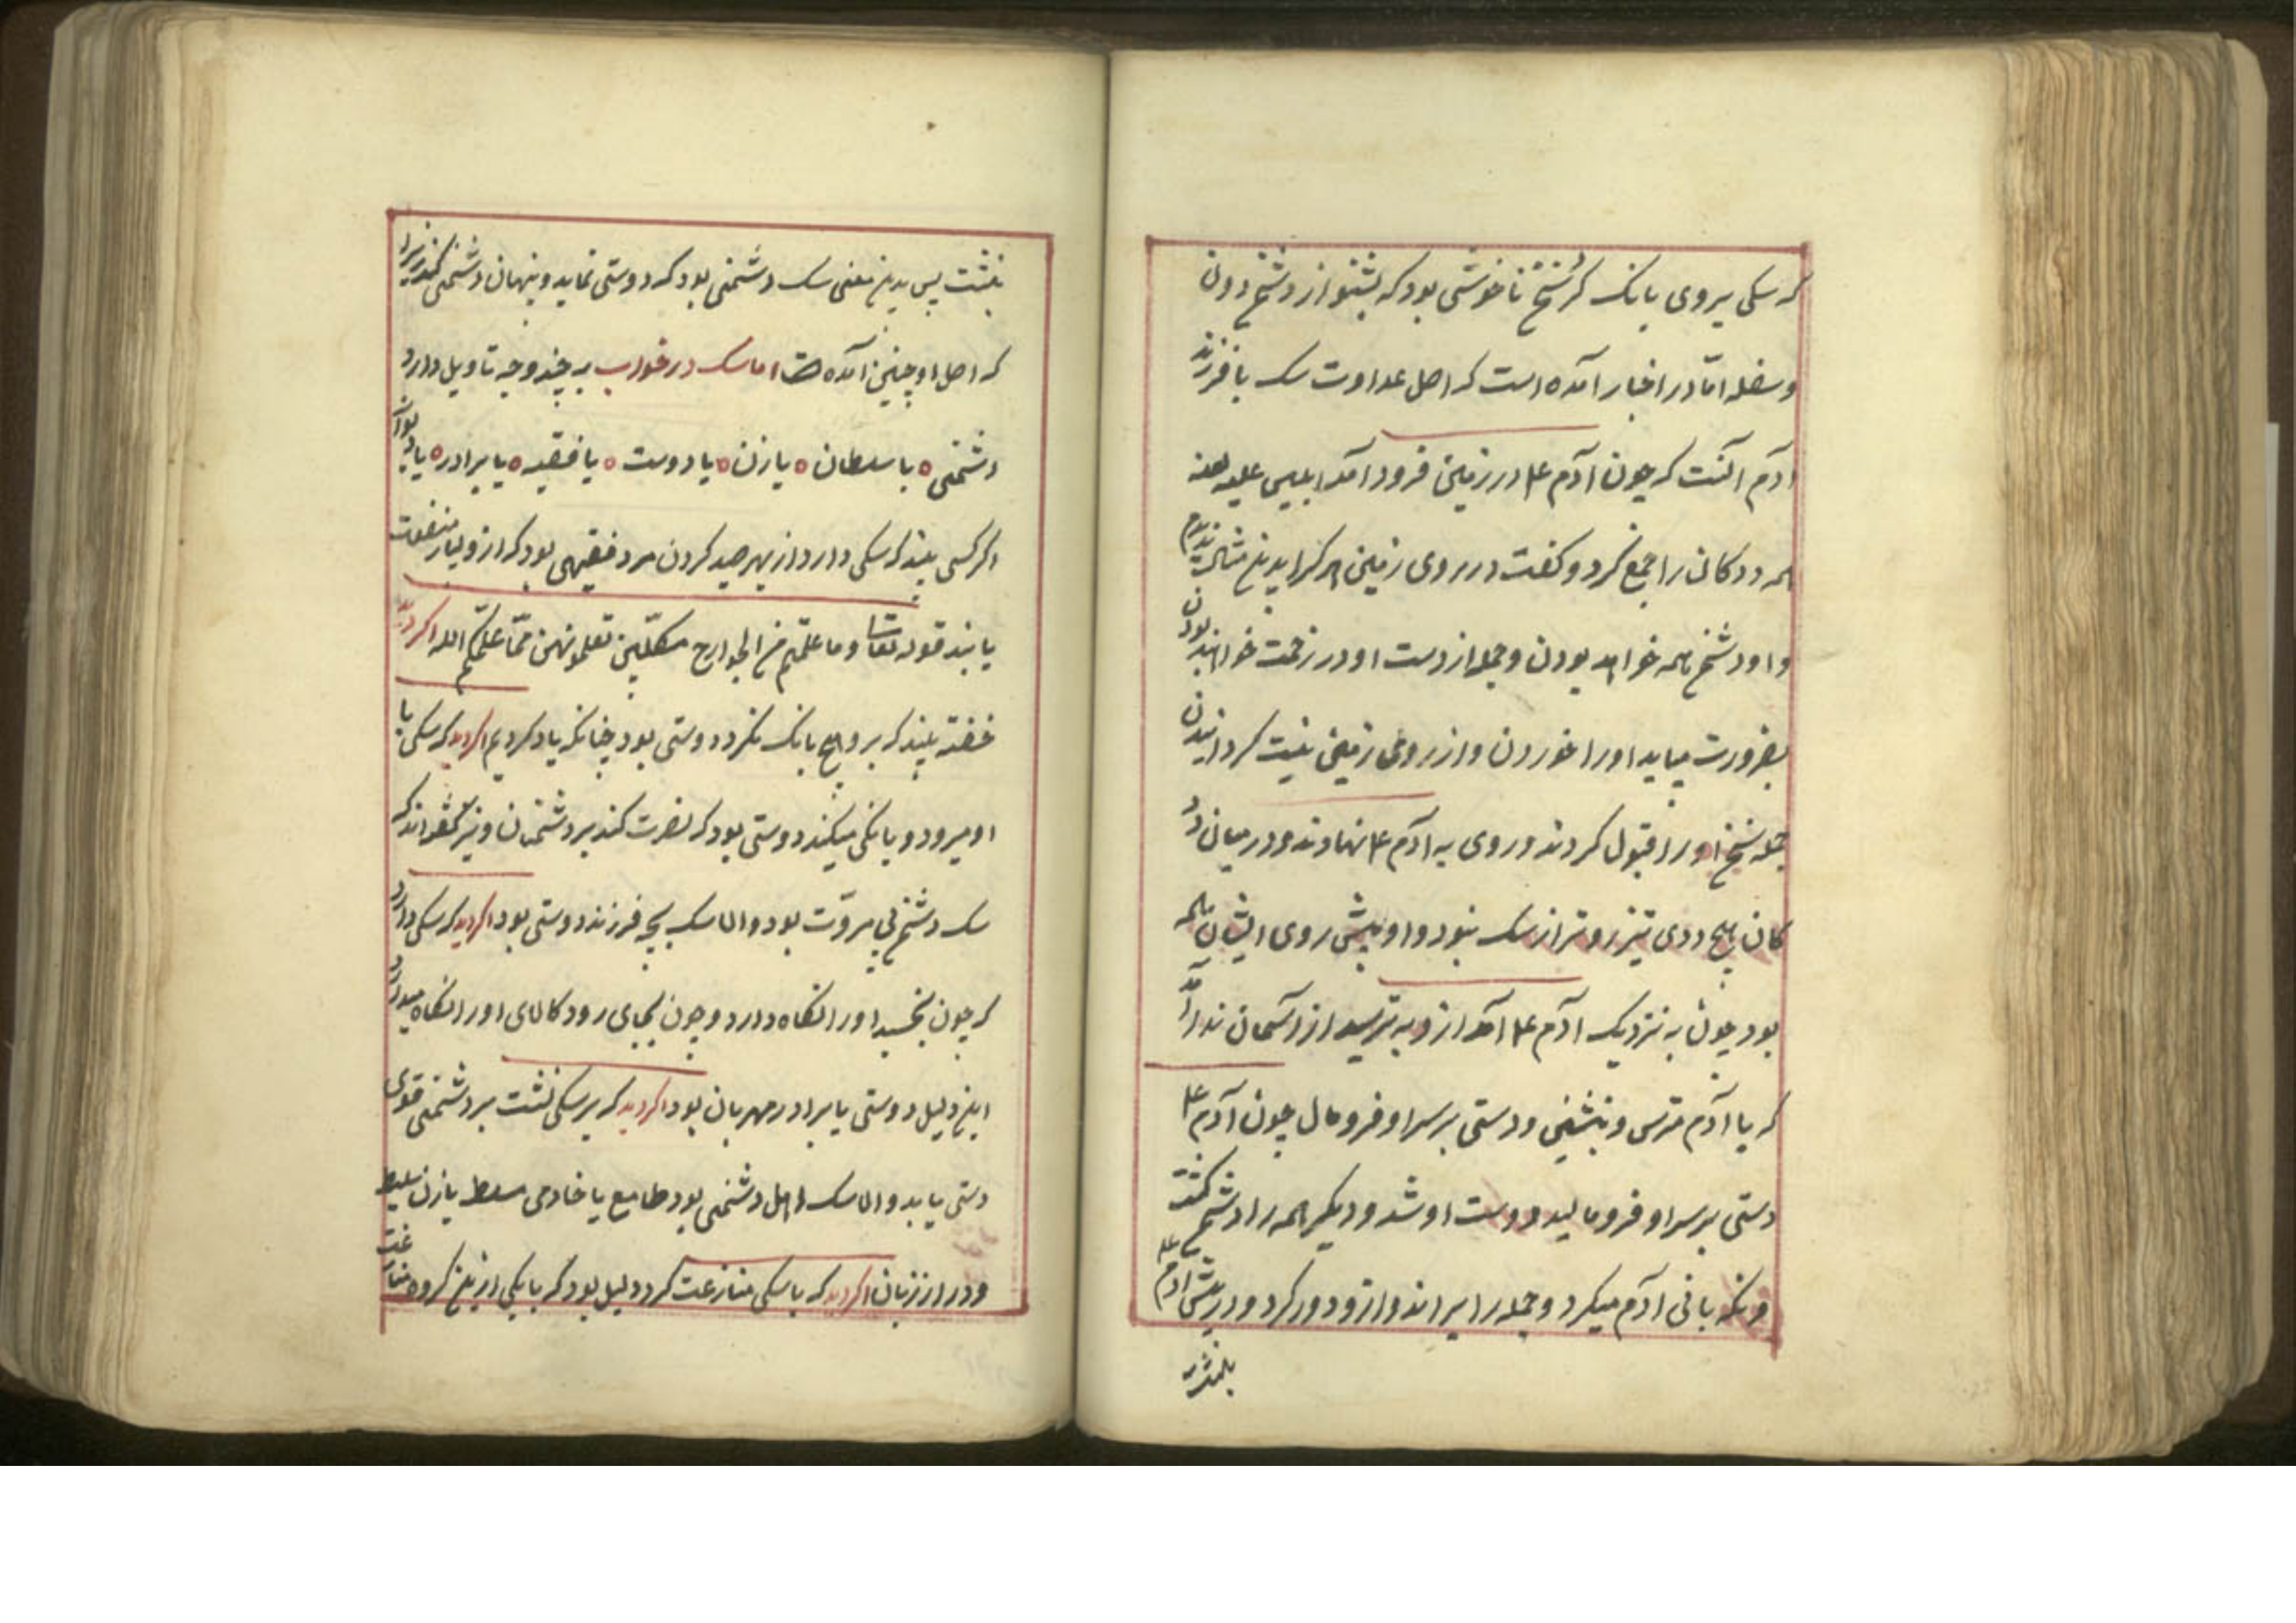 که سکی بروی بانک کرد سخن ناخوشی بود که بشنود از دشمن دون
وسفله امّا در اخبار آمده است که اصل عداوت سک با فرزند
آدم آنست که چون آدم ۴ در زمین فرود آمد ابلیس علیه لعنه
همه ددکان را جمع کرد و کفت در روی زمین هرکز بدین
و او دشمن همه خواهد بودن و جمله از دست او در زحمت خواهند بودن
بضرورت میباید او را خوردن و از روی زمین نیست کردانیدن
جمله سخن او را قبول کردند و روی به آدم ۴ نهادند و در میان دد
کان هیچ ددی تیزروتر از سک نبود و او پیش روی ایشان همه
بود چون به نزدیک آدم ۴ آمد ازو بترسید از آسمان ندا آمد
که یا آدم مترس و بنشین و دستی بر سر او فرو مال چون آدم ۴
دستی بر سر او فرو مالید دوست او شد و دیکر همه را دشمن کشت
و نکه بانی آدم میکرد و جمله را براند و ازو دور کرد و در پیش آدم ۴
بنشست پس بدین معنی سک دشمنی بود که دوستی نماید و پنهان دشمنی کند
که اصل او چنین آمده است اما سک در خواب به چند وجه تاویل دارد
دشمنی ه با سلطان ه یا زن ه یا دوست ه یا فقیه ه یا برادر ه یا
اکر کسی بیند که سکی دارد از بهر صید کردن مرد فقیهی بود که ازو بسیار منفعت
یابند قوله تعالی وما علّمتم من الجوارح مکلّبین تعلمونهن ممّا علّمکم الله اکر دید
خفته بیند که برو هیچ بانک نکرد دوستی بود چنانکه یاد کردیم اکر دید که سکی با
او میرود و بانکی میکند دوستی بود که نصرت کند بر دشمنان و نیز کفته‌اند که
سک دشمن بی مروّت بود و اما سک بچه فرزند دوستی بود اکر دید که سکی دارد
که چون بخسبد او را نکاه دارد و چون بجای رود کالای او را نکاه میدارد
این دلیل دوستی یا برادر مهربان بود اکر دید که بر سکی نشست بر دشمنی قوی
دستی یابد و اما سک اهل دشمنی بود طامع یا خادمی مسلط یا زن سلیط
و دراز زبان اکر دید که با سکی منازعت کرد دلیل بود که با یکی ازین کروه منازعت